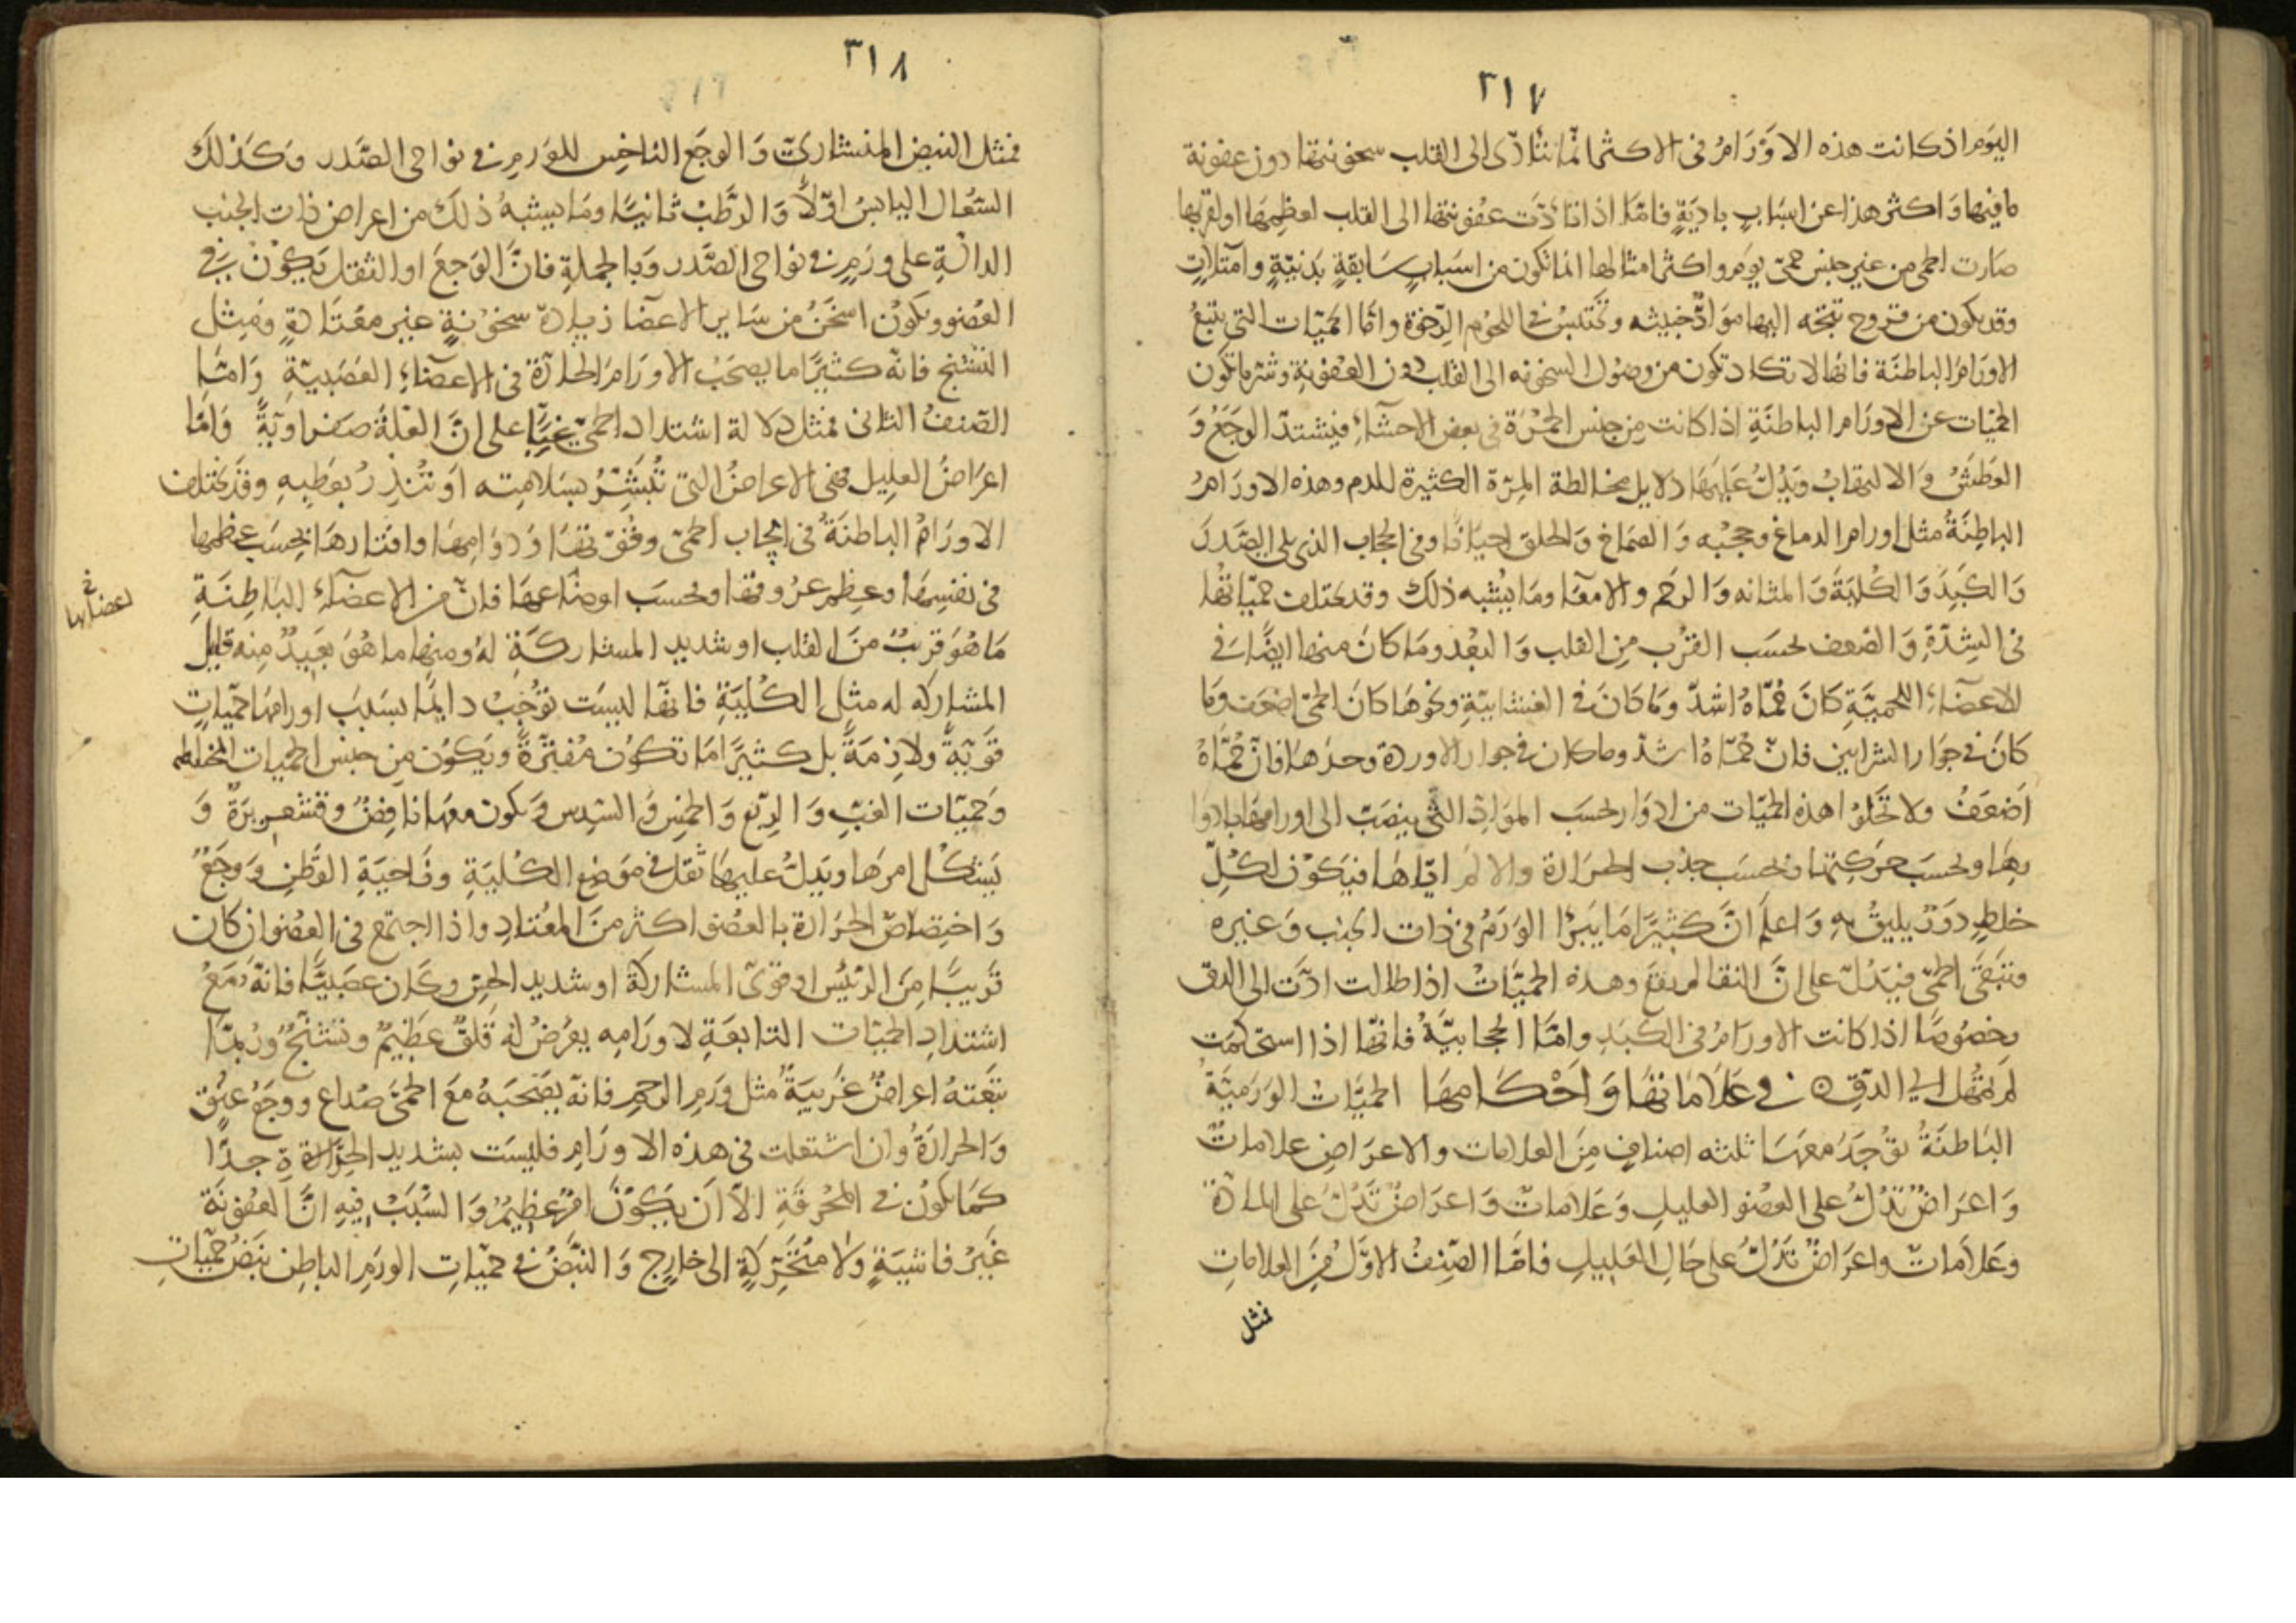 ٣١٧
اليوم اذ كانت هذه الاورام في الاكثر انما تتأدى الى القلب سخونتها دون عفونة
ما فيها واكثر هذا عن اسباب بادية فاما اذا تأدت عفونتها الى القلب لعظمها او لقربها
صارت الحمى من غير جنس حمى يوم واكثر امثالها انما تكون من اسباب سابقة بدنية وامتلات
وقد يكون من قروح تتجه اليها مواد خبيثه وتحتبس في اللحوم الرخوة واما الحميات التي تتبع
الاورام الباطنة فانها لا تكاد تكون من وصول السخونه الى القلب دون العفونة وشر ما تكون
الحميات عن الاورام الباطنة اذا كانت من جنس الحمرة في بعض الاحشاء فيشتد الوجع و
العطش والالتهاب ويدل عليها دلايل مخالطة المرة الكثيرة للدم وهذه الاورام
الباطنة مثل اورام الدماغ وحجبه والصماغ والحلق احيانا وفي الحجاب الذي يلي الصدر
والكبد والكلية والمثانه والرحم والامعا وما يشبه ذلك وقد يختلف حمياتها
في الشدة والضعف بحسب القرب من القلب والبعد وما كان منها ايضا في
الاعضاء اللحمية كان حماه اشد وما كان في الغشايية ونحوها كان الحمى اضعف وما
كان في جوار الشرايين فان حماه اشد وما كان في جوار الاوردة وحدها فان حماه
اضعف ولا تخلوا هذه الحميات من ادوار بحسب المواد التي ينصب الى اورامها بادوا
رها وبحسب حركتها وبحسب جذب الحرارة والالم اياها فيكون لكل
خلط دور يليق به واعلم ان كثيرا ما يبرا الورم في ذات الجنب وغيره
وتبقى الحمى فيدل على ان النقا لم يقع وهذه الحميات اذا طالت ادت الى الدق
وخصوصا اذا كانت الاورام في الكبد واما الحجابية فانها اذا استحكمت
لم تمهل الى الدق ن في علاماتها واحكامها الحميات الورمية
الباطنة توجد معها ثلثه اصناف من العلامات والاعراض علامات
واعراض تدل على العضو العليل وعلامات واعراض تدل على المادة
وعلامات واعراض تدل على حال العليل فاما الصنف الاول من العلامات
فمثل
٣١٨
فمثل النبض المنشاري والوجع الناخس للورم في نواحى الصدر وكذلك
السعال اليابس اولا والرطب ثانيا وما يشبه ذلك من اعراض ذات الجنب
الدالة على ورم في نواحى الصدر وبالجملة فان الوجع او الثقل يكون في
العضو ويكون اسخن من ساير الاعضا زيادة سخونة غير معتادة ومثل
التشنج فانه كثيرا ما يصحب الاورام الحارة في الاعضاء العصبية واما
الصنف الثاني فمثل دلالة اشتداد الحمى غبا على ان العلة صفراوية واما
اعراض العليل فهى الاعراض التي تبشر بسلامته او تنذر بعطبه وقد يختلف
الاورام الباطنة في ايجاب الحمى وقوتها ودوامها وافتارها بحسب عظمها
في نفسها وعظم عروقها وبحسب اوضاعها فان من الاعضاء الباطنة
خ اعضائها
ما هو قريب من القلب او شديد المشاركة له ومنها ما هو بعيد منه قليل
المشاركه له مثل الكلية فانها ليست توجب دايما بسبب اورامها حميات
قوية ولازمة بل كثيرا ما تكون مفترة ويكون من جنس الحميات المختلطه
وحميات الغب والربع والخمس والسدس ويكون معها نافض وقشعريرة و
يشكل امرها ويدل عليها ثقل في موضع الكلية وناحية القطن ووجع
واختصاص الحرارة بالعضو اكثر من المعتاد واذا اجتمع في العضو ان كان
قريبا من الرئيس او قوى المشاركة او شديد الحس وكان عصبيا فانه مع
اشتداد الحميات التابعة لاورامه يعرض له قلق عظيم وتشنج وربما
تبعته اعراض غريبة مثل ورم الرحم فانه يصحبه مع الحمى صداع ووجع عنق
والحرارة وان اشتعلت في هذه الاورام فليست بشديد الحرارة جدا
كما تكون في المحرقة الا ان يكون امر عظيم والسبب فيه ان العفونة
غير فاشية ولا متحركة الى خارج والنبض في حميات الورم الباطن نبض حميات